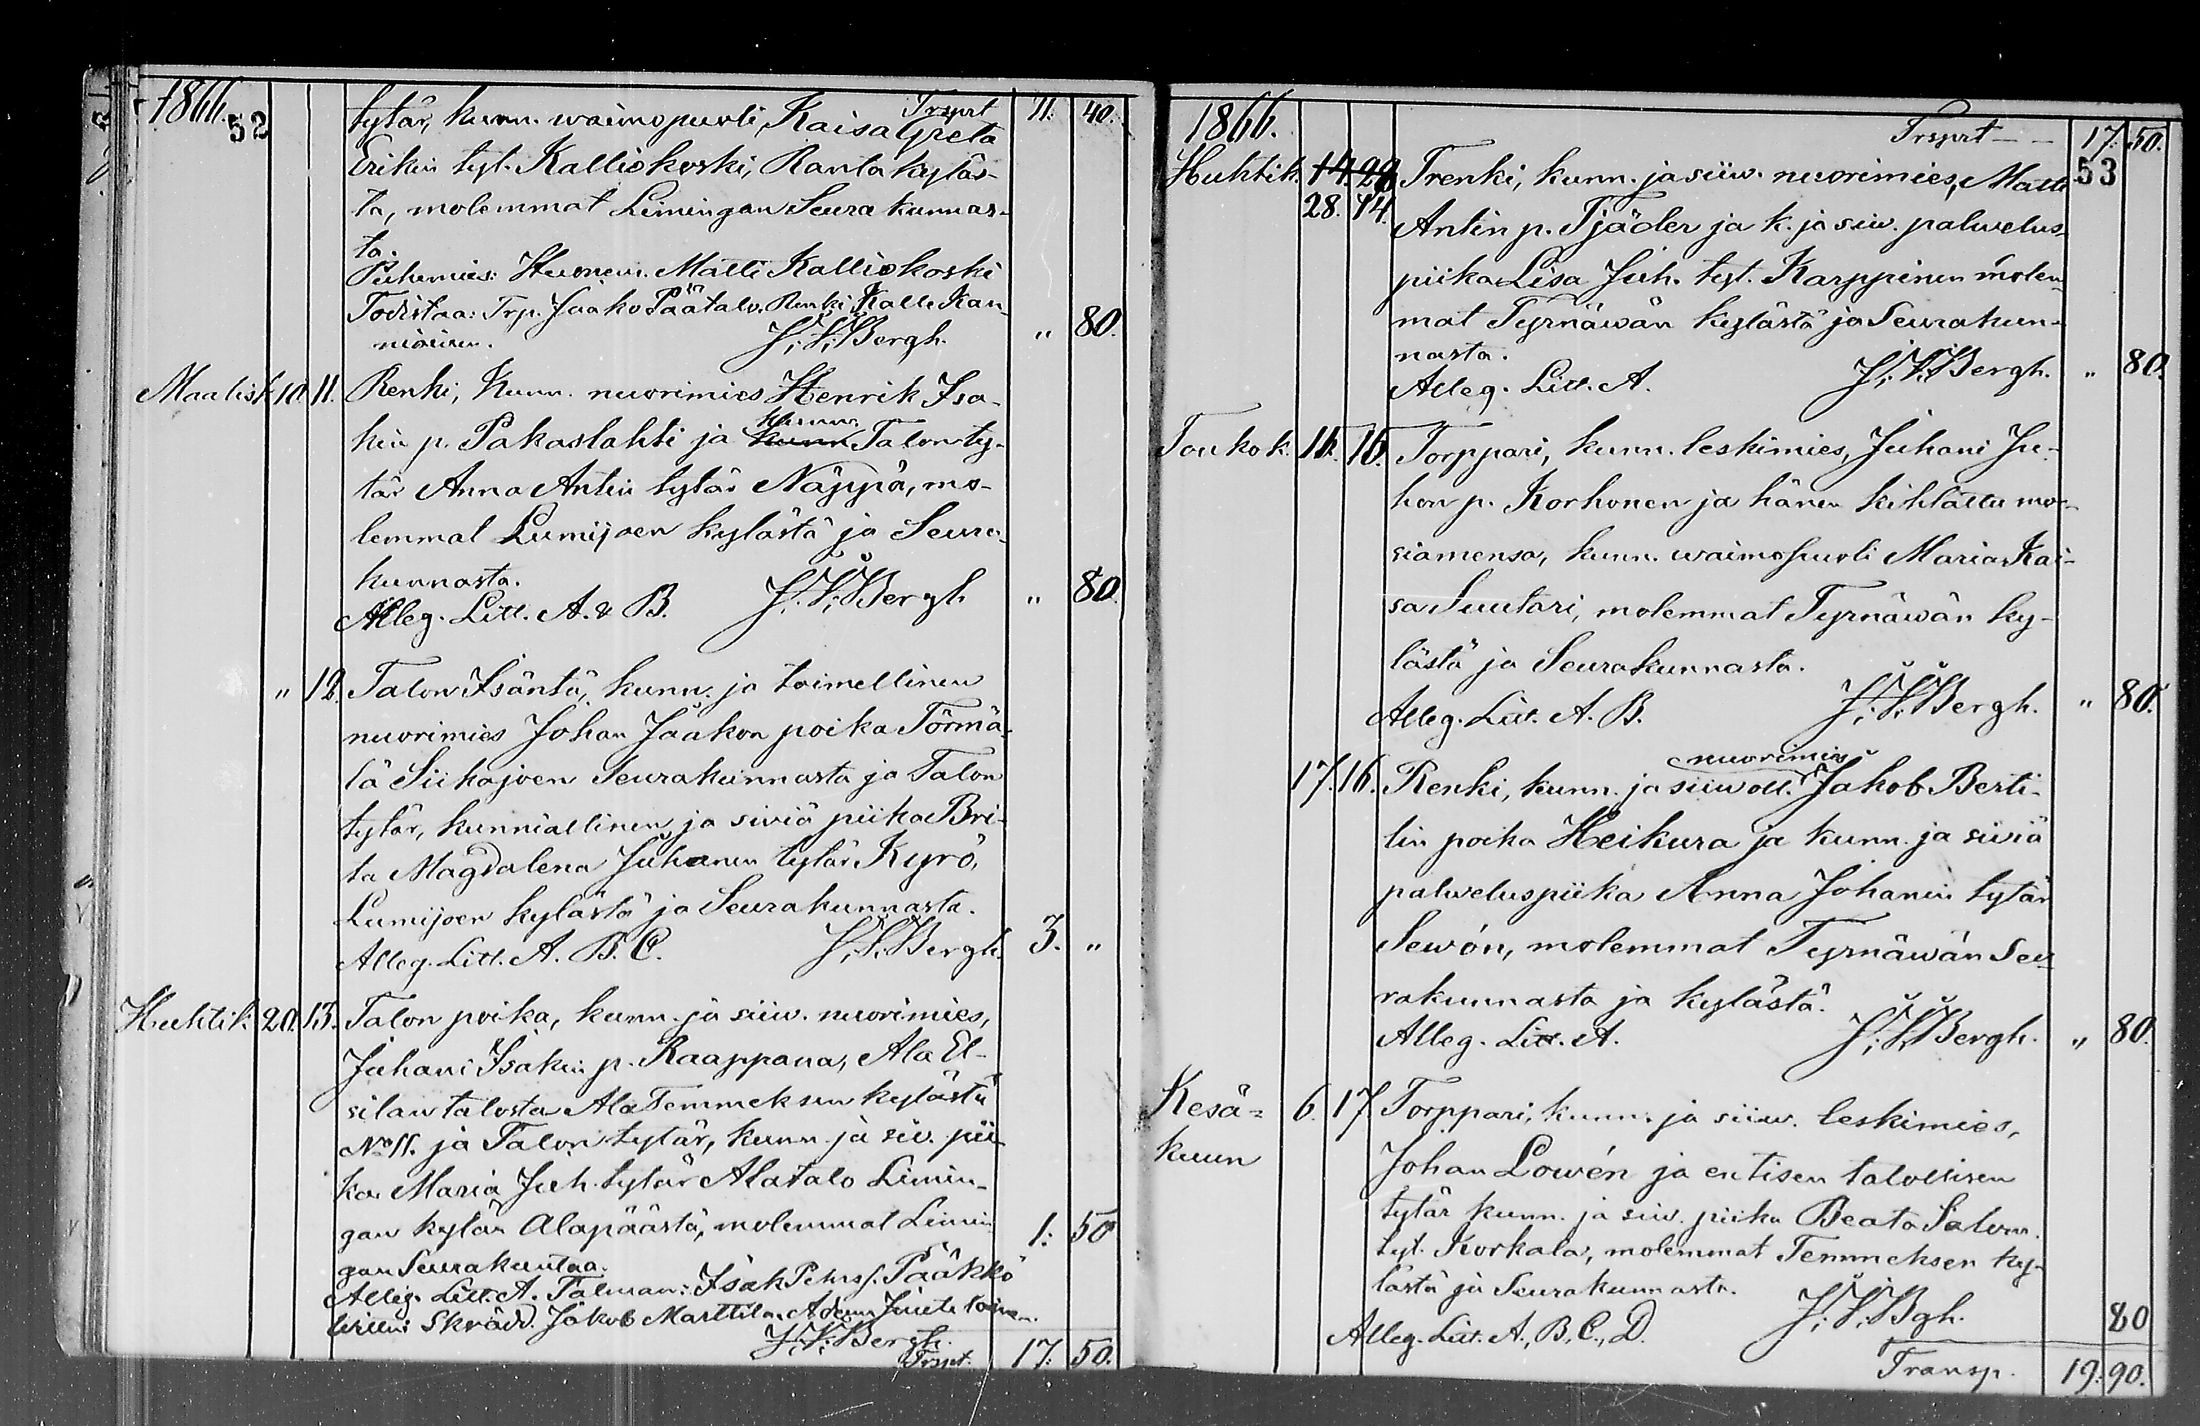 1866. 52 Trsprt 11. 40.
tytär, kunn. waimopuoli, Kaisa Greta
Erikin tyt. Kalliokoski, Ranta kyläs-
tä, molemmat Limingan Seurakunnas-
ta.
Puhemies: Huonem. Matti Kalliokoski
Todistaa: Trp. Jaako Päätalo, Renki Kalle Kan-
niainen. J. V. Bergh. " 80.
Maalisk. 10. 11. Renki, Kunn. nuorimies Henrik Isa-
kin p. Pakaslahti ja kunn. Talon ty-
tär Anna Antin tytär Näppä, mo-
lemmat Lumijoen kylästä ja Seura-
kunnasta.
Alleg. Litt. A. & B. J. V. Bergh " 80.
" 12. Talon Isäntä, kunn. ja toimellinen
nuorimies Johan Jaakon poika Törmä-
lä Siikajoen Seurakunnasta ja Talon
tytär, kunniallinen ja siviä piika Bri-
ta Magdalena Juhanin tytär Kyrö,
Lumijoen kylästä ja Seurakunnasta.
Alleg. Litt. A. B. C. J. V. Bergh. 3. "
Huhtik. 20. 13. Talon poika, kunn. ja siiw. nuorimies,
Juhani Isakin p. Raappana, Ala El-
silan talosta Ala Temmeksen kylästä
No 11. ja Talon tytär, kunn. ja siv. pii-
ka Maria Juh. tytär Alatalo Limin-
gan kylän Alapäästä, molemmat Limin- 1: 50
gan Seurakuntaa.
Alleg. Litt. A. Talman: Isak Pehrs. Pääkkö
Skrädd. Jakob Marttila
J. V. Bergh.
Trspt. 17. 50.
1866. Trsprt - - 17. 50.
53
Huhtik. 14. 28 Trenki, kunn. ja siiw. nuorimies, Matti
28. 14. Antin p. Tjäder ja k. ja siw. palwelus-
piika Lisa Juh. tyt. Karppinen molem-
mat Tyrnäwän kylästä ja Seurakun-
nasta.
Alleg. Litt. A. J. V. Bergh. " 80.
Toukok. 16. 15. Torppari, kunn. leskimies, Juhani Ju-
hon p. Korhonen ja hänen kihlattu mor-
siamensa, kunn. waimopuoli Maria Kai-
sa Suutari, molemmat Tyrnäwän ky-
lästä ja Seurakunnasta.
Alleg. Litt. A. B. J. V. Bergh. " 80.
nuorimies
17. 16. Renki, kunn. ja siiwoll. Jakob Berti-
lin poika Heikura ja kunn. ja siviä
palweluspiika Anna Johanin tytär
Sewón, molemmat Tyrnäwän Seu-
rakunnasta ja kylästä.
Alleg. Litt. A. J. V. Bergh. " 80.
Kesä= 6. 17 Torppari, kunn. ja siiw. leskimies,
kuun Johan Lowén ja entisen talollisen
tytär kunn. ja siw. piika Beata Salom.
tyt. Korkala, molemmat Temmeksen ky-
lästä ja Seurakunnasta.
Alleg. Litt. A., B., C., D. J. V. Bgh. 80
Transp. 19. 90.